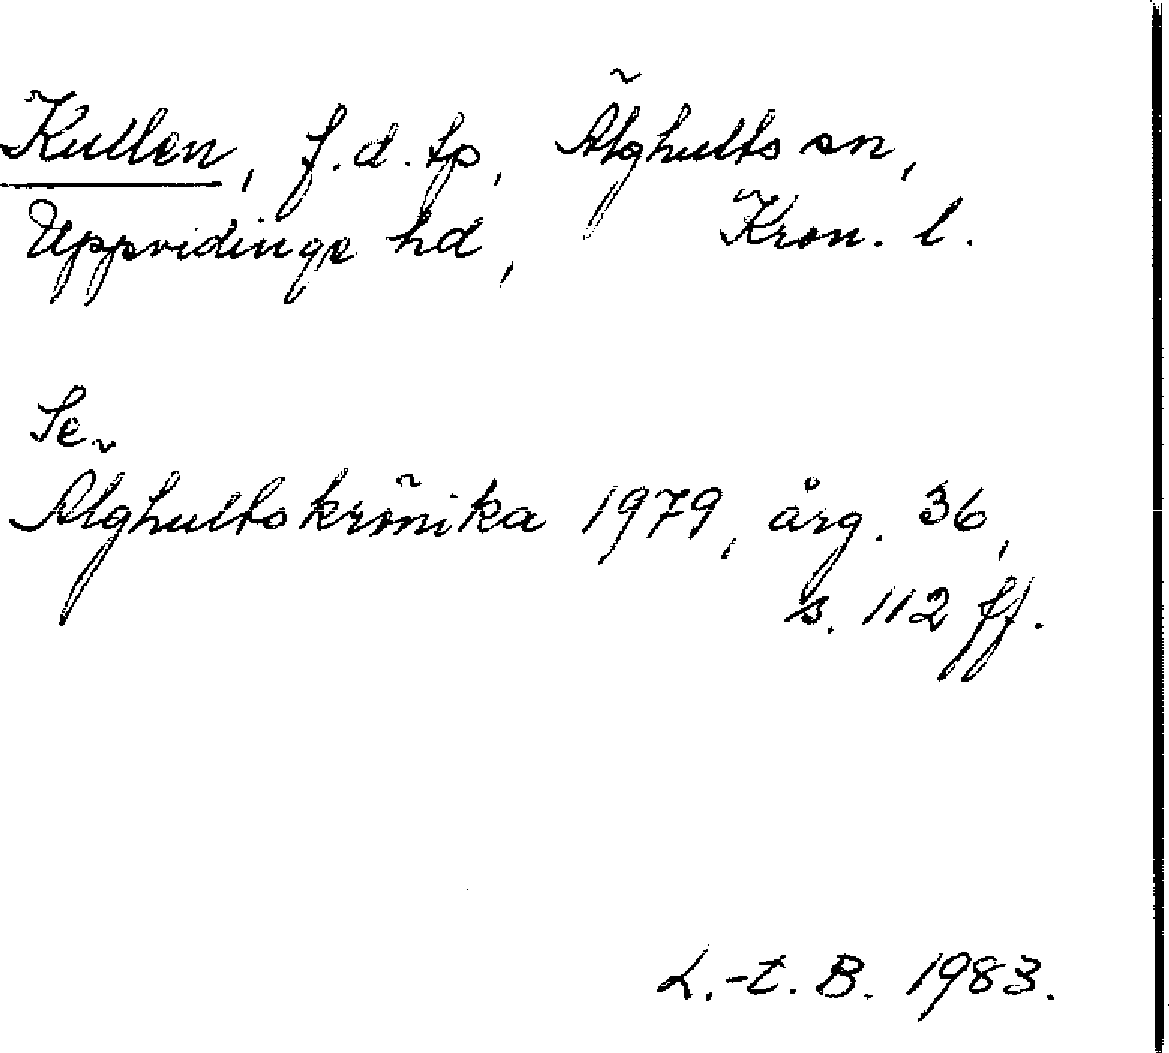 Kullen, f.d. tp, Älghults sn,
Uppvidinge hd, Kron. l.
Se
Älghultskrönika 1979, årg. 36,
s. 112 ff.
L.-t. B. 1983.